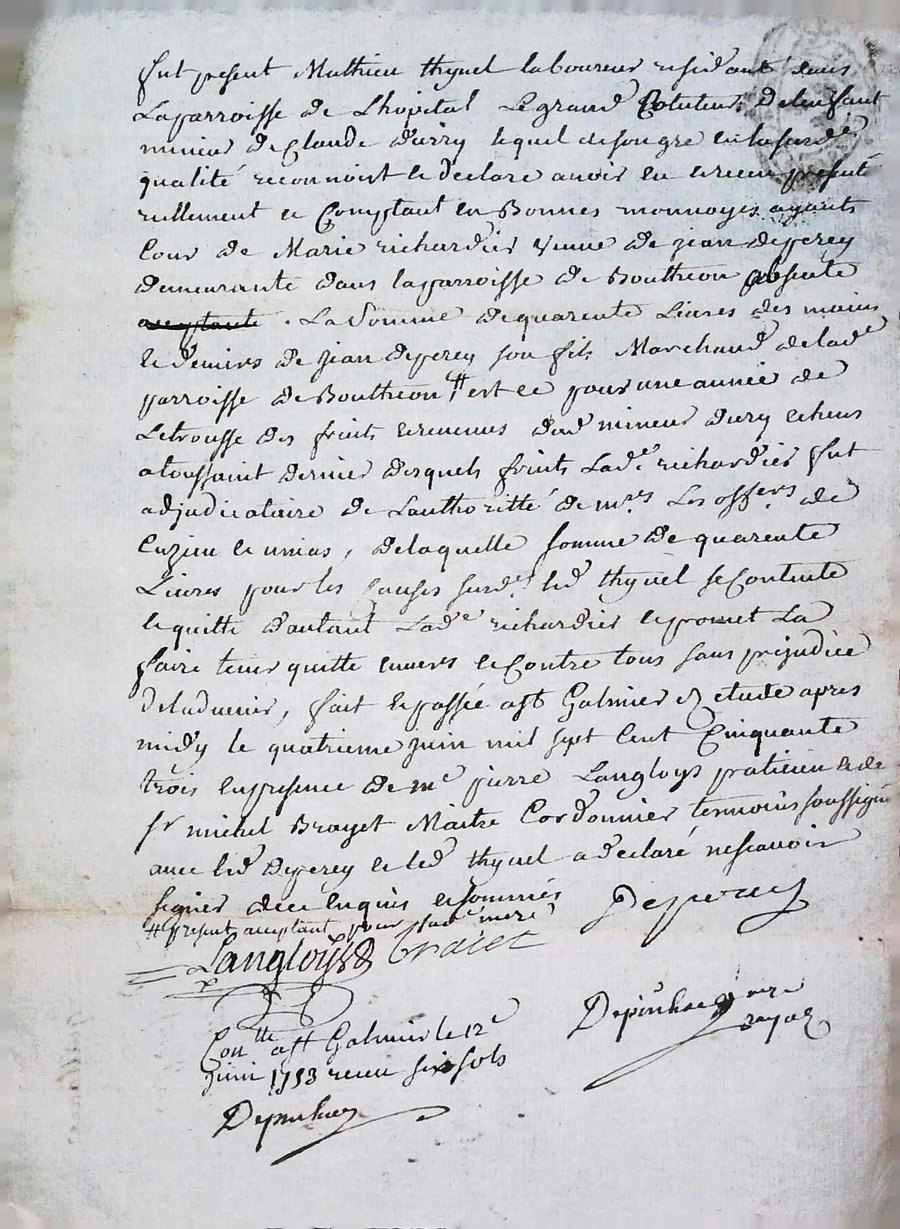 fut present Mathieu thynel laboureur residant dans
La parroisse de L'hôpital Le grand Cotuteur De lenfant
mineur De Claude Durry lequel de son gre en la susd.e
qualité reconnoist et declare avoir eu et receu presente
réellement et Comptant en Bonnes monnoyes ayants
Cour de Marie richardier veuve de jean deperey
demeurante dans la parroisse de Boutheon absente
acceptante . La Somme de quarente Livres des mains
et deniers de jean deperey son fils Marchand de lad.e
parroisse de Boutheon # est ce pour une année de
Letrousse des fruits et revenus dud mineur Durry echeus
a toussaint dernier desquels fruits Lad.e richardier fut
adjudicataire de Lauthoritté de m.rs Les off.ers de
, de laquelle somme de quarente
Livres pour les Causes susd.es led thynel se Contente
et quitte d'autant Lad.e richardier et promet La
faire tenir quitte envers et Contre tous sans prejudice
de ladvenir, fait et passée a S.t Galmier etude apres
midy le quatrieme juin mil sept Cent Cinquante
trois en presence de m.e pierre Langloys praticien et de
s.r michel Brayet Maitre Cordonnier temoins soussignés
avec led Deperey et led thynel a declaré ne scavoir
signer de ce enquis et sommés
# present acceptant pour sad.e mere
Deperey
Langloys Braiet
Con.tllé a S.t Galmier le 12.e
juin 1753 receu six sols